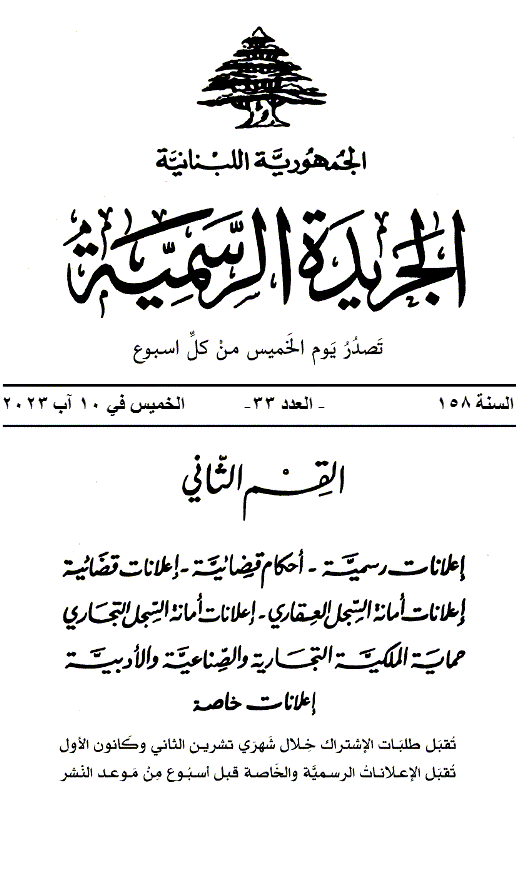 الجمهورية اللبنانية
الجريدة الرسمية
تَصدُرُ يَوم الخَميس منْ كلِّ اسبوع
السنة ١٥٨ - العدد ٣٣- الخميس في ١٠ آب ٢٠٢٣
القِسْم الثّاني
إعلانات رسميَّة - أحكام قضائيَّة - إعلانات قضائية
إعلانات أمانة السِّجل العقاري - إعلانات أمانة السِّجل التجاري
حماية الملكيَّة التجارية والصِّناعيَّة والأدبيَّة
إعلانات خاصة
تُقبَل طلبَات الإشتراك خِلال شَهرَي تشرين الثاني وكَانون الأول
تُقبَل الإعلاناتُ الرسميَّة والخَاصة قبل أسبُوع مِنْ مَوعد النَشر